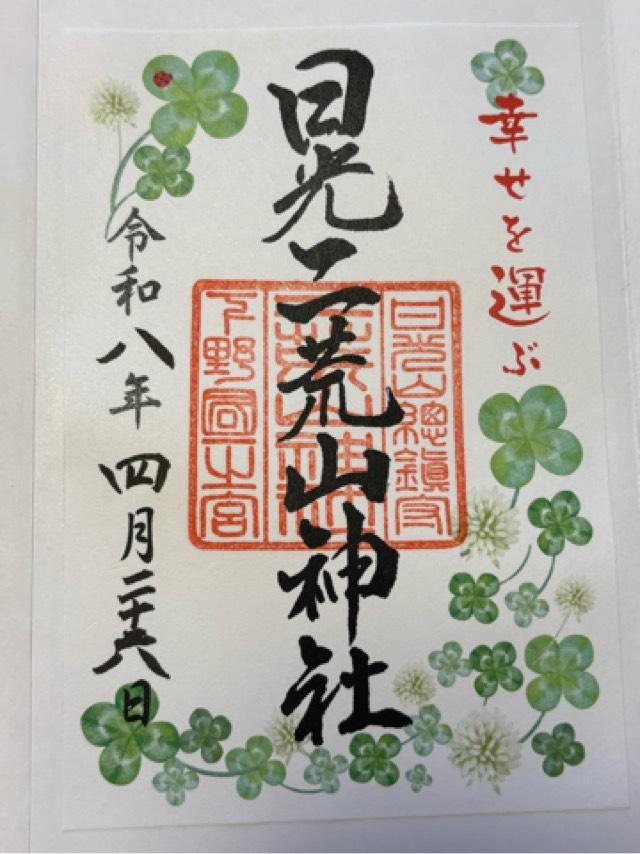 幸せを運ぶ
日光二荒山神社
日光山總鎮守
二荒山神社
下野國一之宮
令和八年四月二十六日